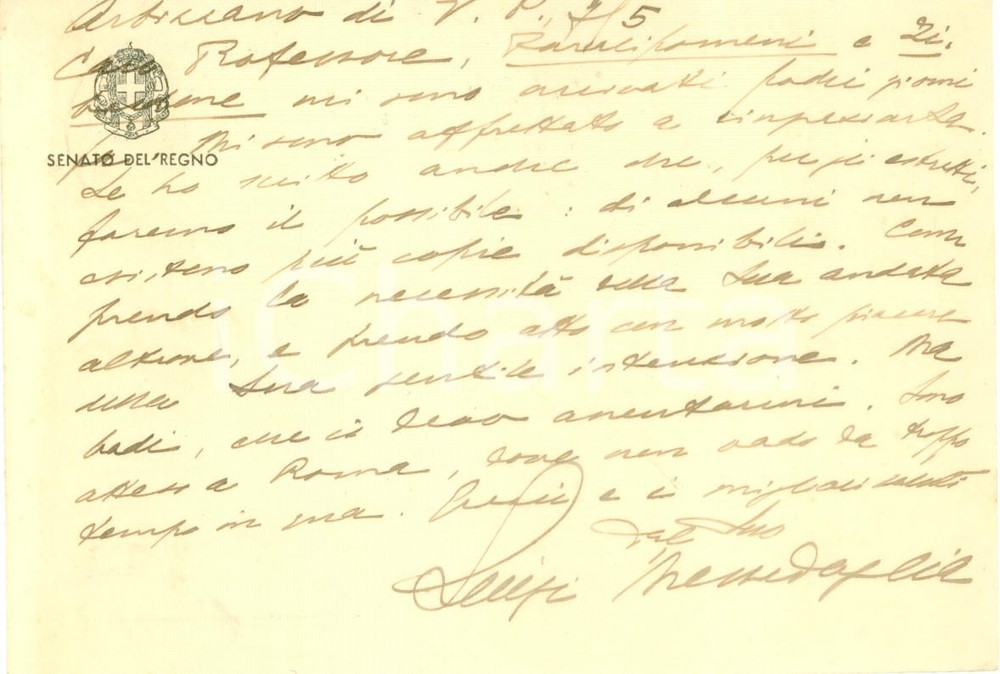 Arbizzano di V. P., 7/5
Caro Professore, Paralipomeni e Zi-
baldone mi sono arrivati pochi giorni
fa. Mi sono affrettato a
SENATO DEL REGNO
Le ho scritto anche che, per gli estratti,
faremo il possibile : di alcuni non
esistono più copie disponibili. Com
prendo la necessità della Sua andata
altrove, e prendo atto con molto piacere
della Sua gentile intenzione. Ma
badi, che io devo assentarmi. Sono
atteso a Roma, dove non vado da troppo
tempo in qua. Grazie e i migliori saluti
dal Suo
Luigi Messedaglia
iCharta